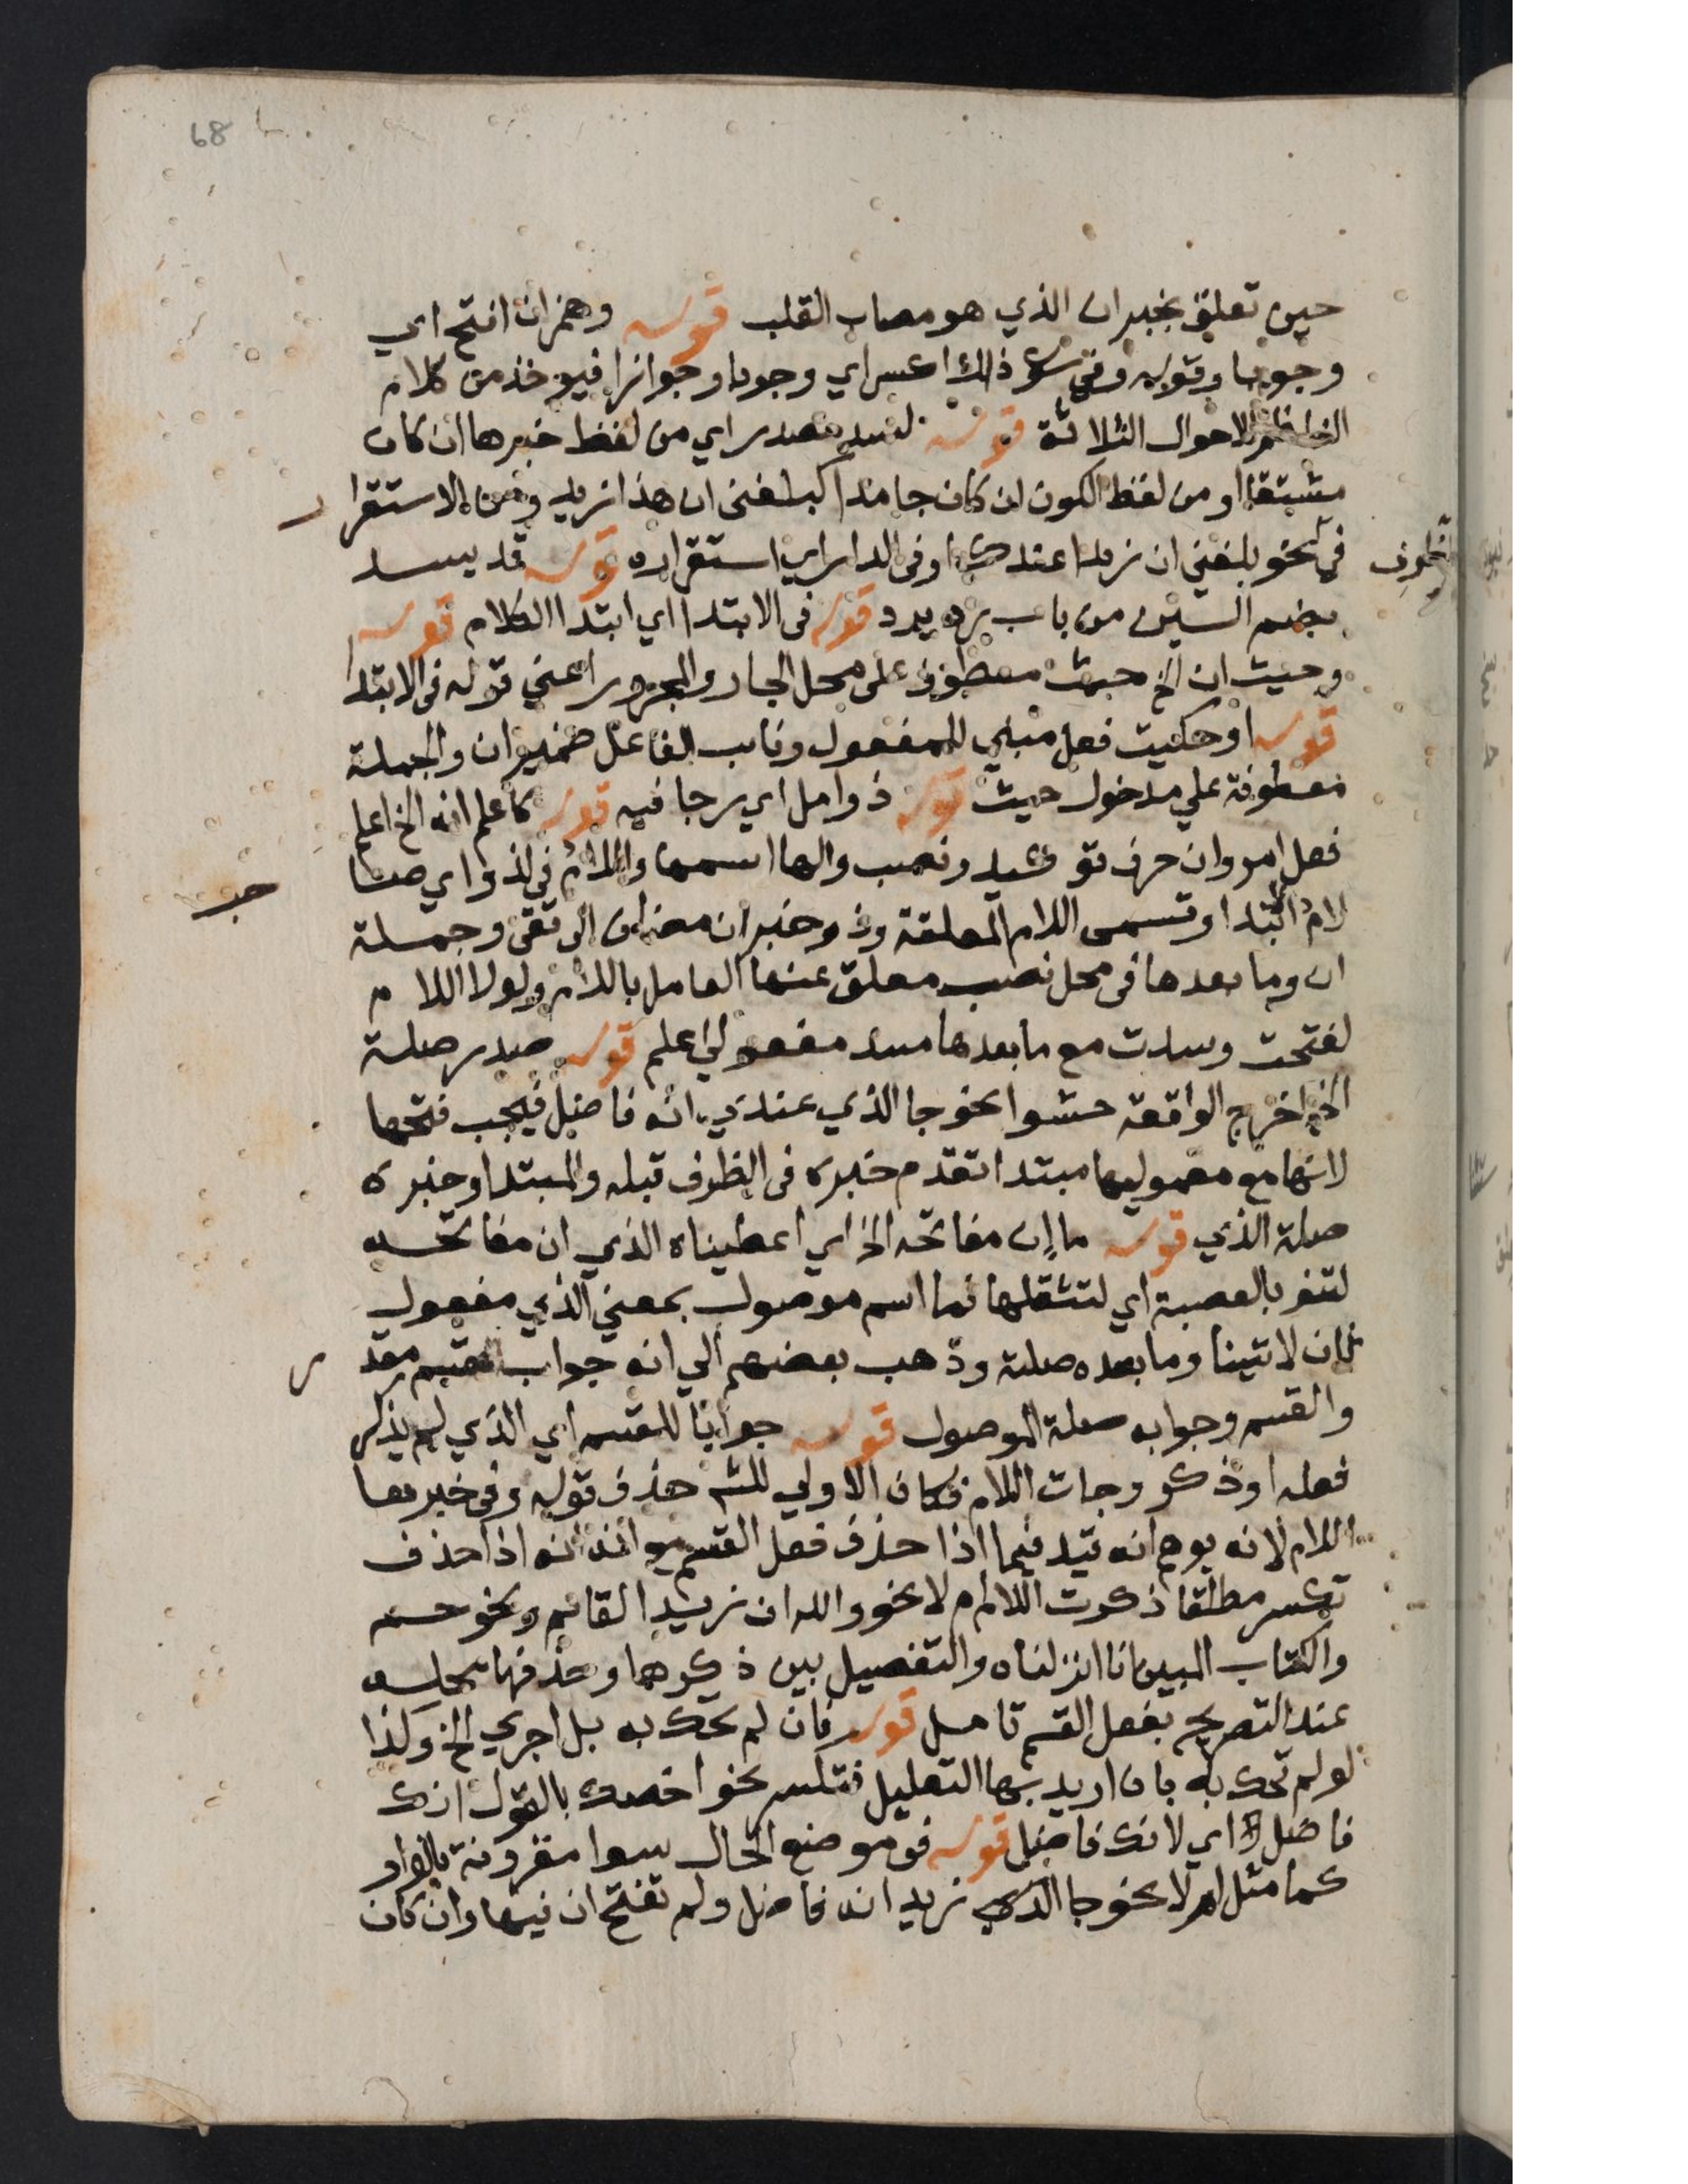 68
حين تعلق بخبران الذي هو مصاب القلب قوله وهمزان افتح اي
وجوبا وقوله وفي سوى ذاك اكسر اي وجوبا وجوازا فيوخذ من كلام
الناظم الاحوال الثلاثة قوله لسد مصدر اي من لفظ خبرها ان كان
مشتقا او من لفظ الكون ان كان جامدا كبلغني ان هذا زيد ومن الاستقرار
في نحو بلغني ان زيدا عندك او في الدار اي استقراره قوله قد يسد
بضم السين من باب رد يرد قوله في الابتدا اي ابتدا الكلام قوله
وحيث ان الخ حيث معطوف على محل الجار والمجرور اعني قوله في الابتدا
قوله او حكيت فعل مبني للمفعول ونايب الفاعل ضمير ان والجملة
معطوفة علي مدخول حيث قوله ذو امل اي رجا فيه قوله كاعلم انه الخ اعلم
فعل امر وان حرف توكيد ونصب والها اسمها واللام في لذو اي صا
حب
لام ابتدا وتسمى اللام المعلقة وذو خبر ان مضاف الى تقى وجملة
ان وما بعدها فى محل نصب معلق عنها العامل باللام ولولا اللام
لفتحت وسدت مع ما بعدها مسد مفعولي اعلم قوله صدر صلة
الخ اخرج الواقعة حشوا نحو جا الذي عندي انه فاضل فيجب فتحها
لانها مع معموليها مبتدا تقدم خبره فى الظرف قبله والمبتدا وخبره
صلة الذي قوله ما إن مفاتحه الخ اي اعطيناه الذي ان مفاتحه
لتنو بالعصبة اي لتثقلها فما اسم موصول بمعني الذي مفعول
ثان لاتينا وما بعده صلة وذهب بعضهم الي انه جواب لقسم مقد
ر
والقسم وجوابه صلة الموصول قوله جوابا للقسم اي الذي لم يذكر
فعله او ذكر وجات اللام فكان الاولي للش حذف قوله وفى خبرها
اللام لانه يوهم انه قيد فيما اذا حذف فعل القسم مع انه اذا حذف
تكسر مطلقا ذكرت اللام ام لا نحو والله ان زيدا لقايم ونحو حم
والكتاب المبين انا انزلناه والتفصيل بين ذكرها وحذفها محله
عند التصريح بفعل القسم تامل قوله فان لم تحك به بل اجري الخ وكذا
لو لم تحك به بان اريد بها التعليل فتكسر نحو اخصك بالقول انك
فاضل اي لانك فاضل قوله في موضع الحال سوا مقرونة بالواو
كما مثل ام لا نحو جا الذي زيد انه فاضل ولم تفتح ان فيها وان كان